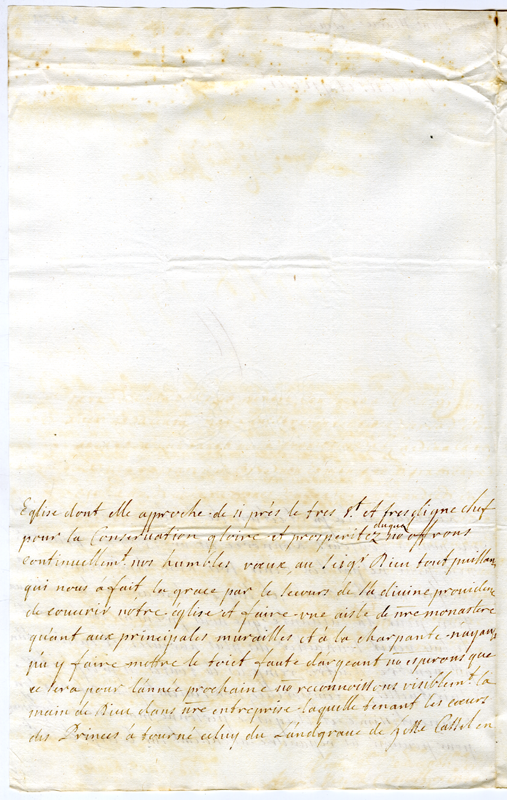 Eglise dont elle approche de si prés le tres st et tres digne chef
duquel
pour la Conservation gloire et prosperitez no offrons
continuellemt. nos humbles vœux au Seigr Dieu tout puissan,
qui nous à fait la grace par le secours de sa divine providen
de couvrir notre église et faire une aisle de nre monastere
quant aux principales murailles et à la charpante nayan,
pu y faire mettre le toict faute dargeant no esperons que
ce sera pour lannée prochaine no reconnoissons visiblemt. la
main de Dieu dans nre entreprise laquelle tenant les cœurs
des Princes à tourné celuy du Landgrave de hesse Cassel en